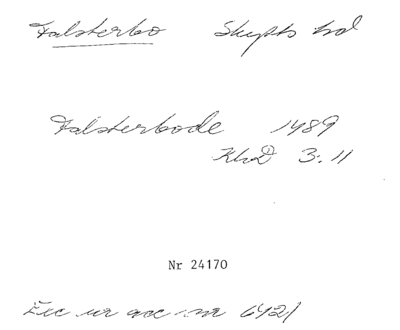 Falsterbo Skytts hd
Falsterbode 1489
KhvD 3:11
Nr 24170
Exc ur acc. nr 6421